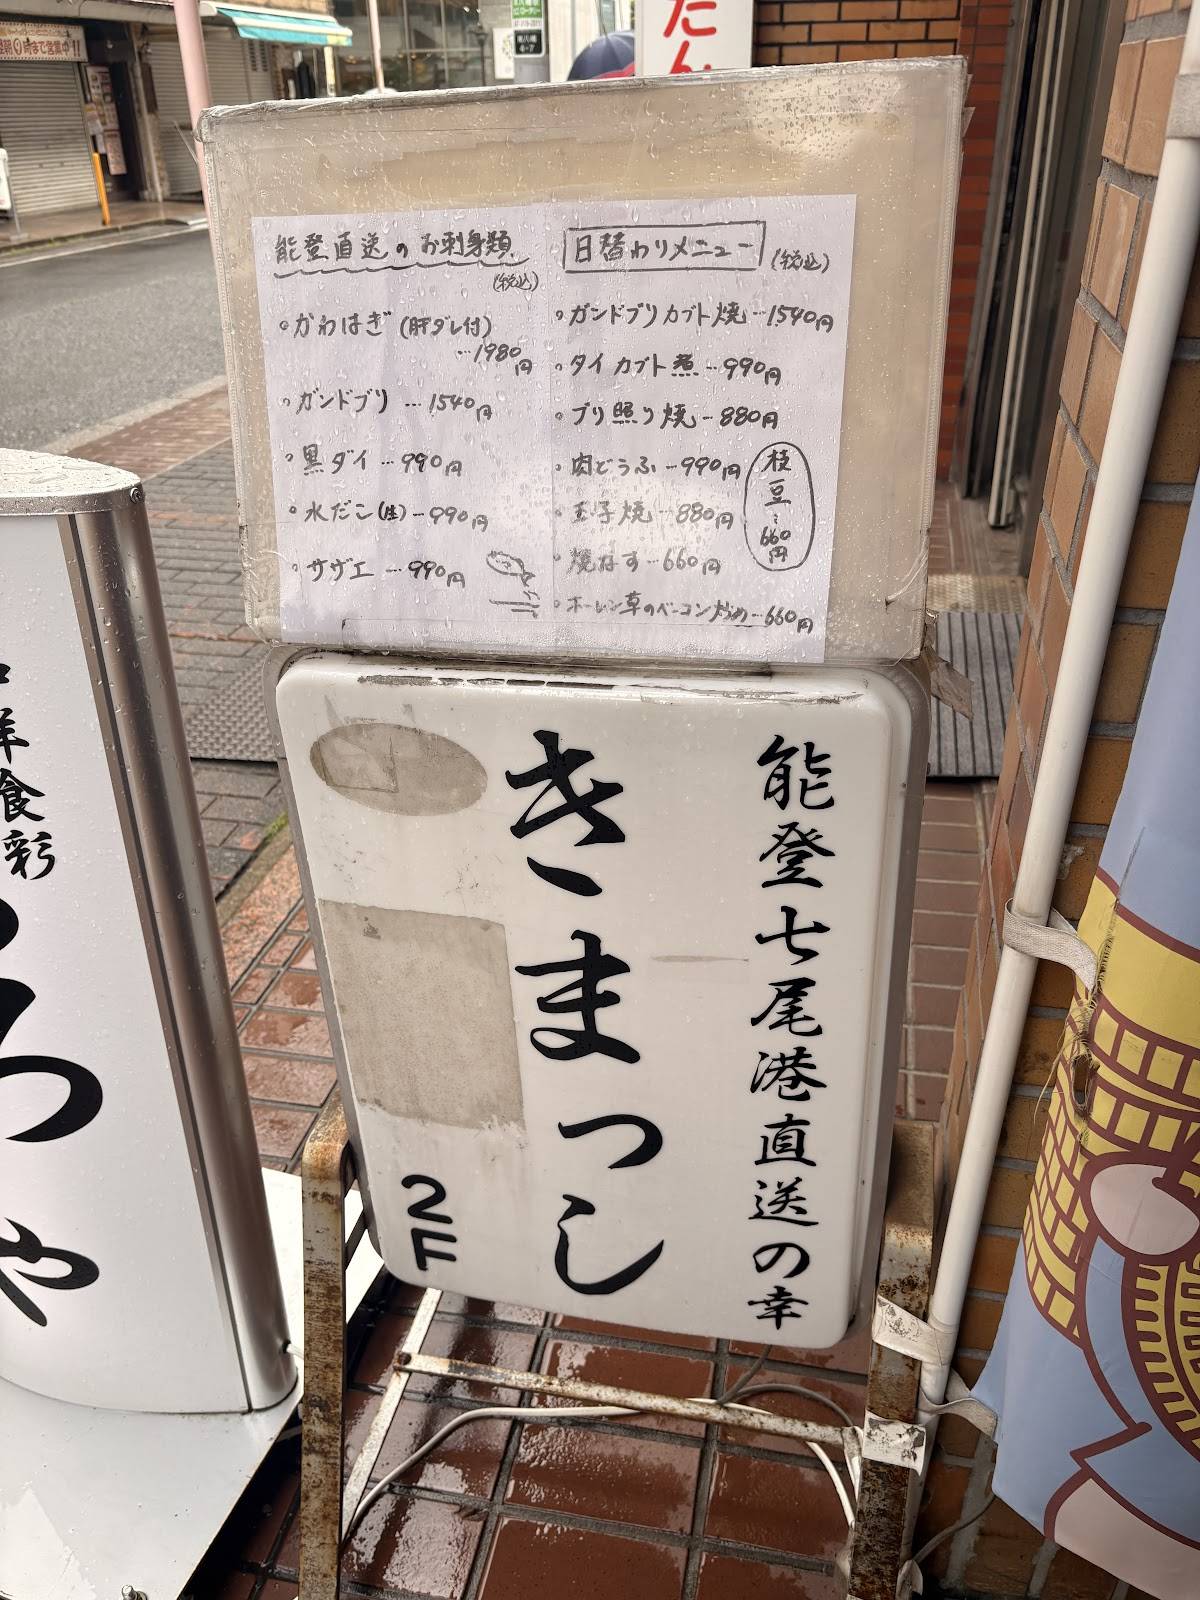 能登直送のお刺身類
(税込)
・かわはぎ (肝ダレ付)
…1980円
・ガンドブリ …1540円
・黒ダイ …990円
・水だこ(生) …990円
・サザエ …990円
日替わりメニュー (税込)
・ガンドブリカブト焼 …1540円
・タイカブト煮 …990円
・ブリ照り焼 …880円
・肉どうふ …990円
・玉子焼 …880円
・焼なす …660円
・ホーレン草のベーコン炒め …660円
枝豆…660円
能登七尾港直送の幸
きまっし
2F
洋食彩
や
たん
時まで営業中!!